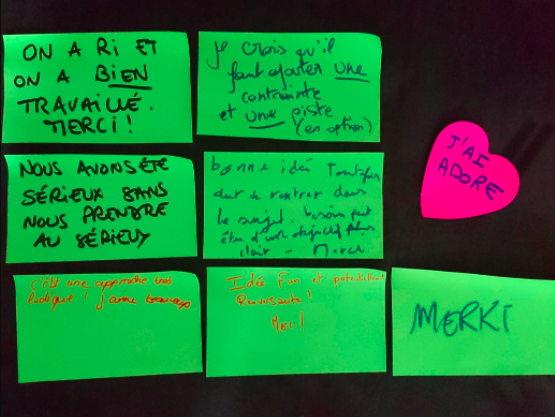 ON A RI ET
ON A BIEN
TRAVAILLÉ.
MERCI!
Je crois qu'il
faut ajouter une
contrainte
et une piste
(en option)
J'AI
ADORE
NOUS AVONS ÉTÉ
SÉRIEUX SANS
NOUS PRENDRE
AU SÉRIEUX
bonne idée Toutefois
dur de rentrer dans
le sujet. besoin peut
être d'un objectif plus
clair - Merci
c'est une approche très
ludique! j'aime beaucoup
Idée Fun et potentiellement
Ravissante!
Merci!
MERKI